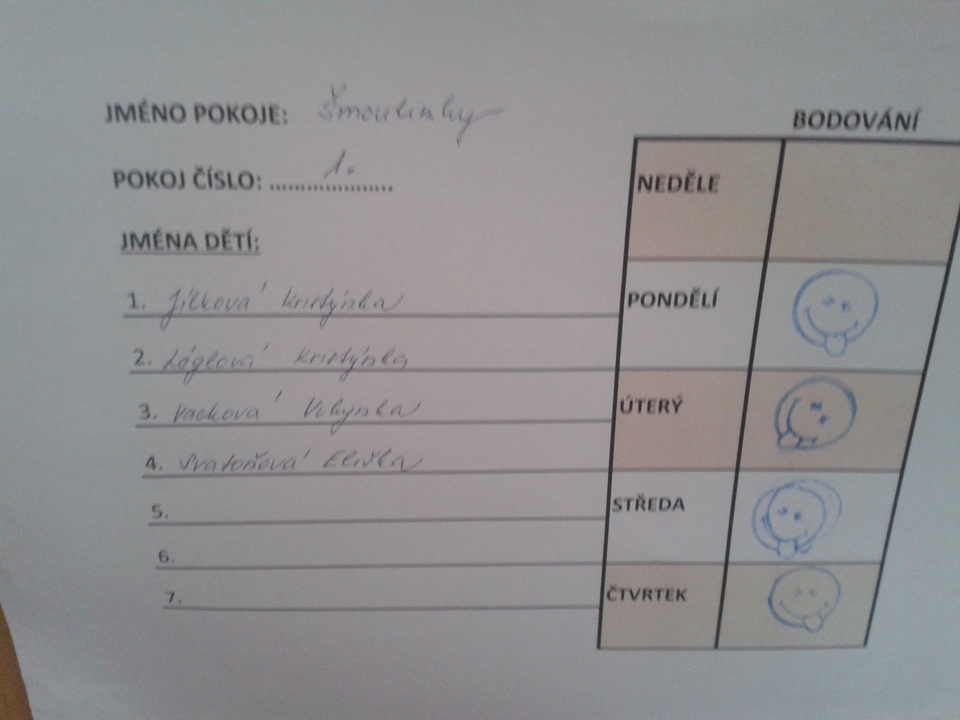 JMÉNO POKOJE: Šmoulinky
BODOVÁNÍ
POKOJ ČÍSLO: .................... 1.
NEDĚLE
JMÉNA DĚTÍ:
1. Jílková Kristýnka
PONDĚLÍ
2. Kristýnka
3. Vacková
ÚTERÝ
4. Svatoňová Eliška
5.
STŘEDA
6.
7.
ČTVRTEK